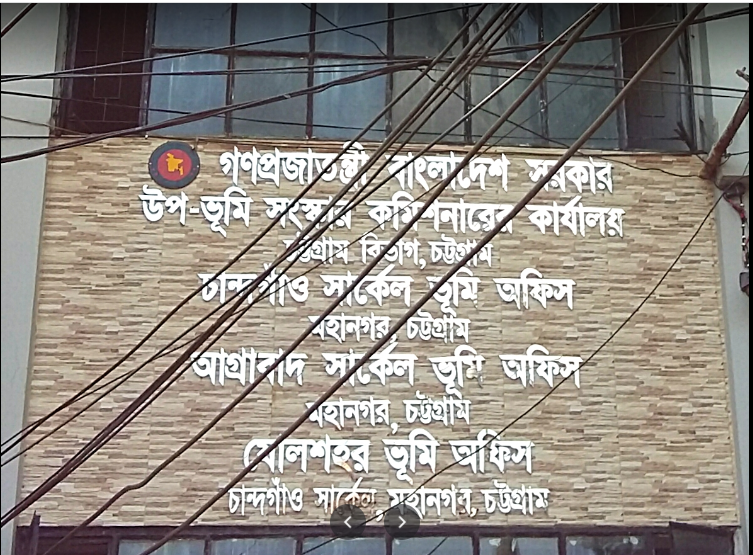 গণপ্রজাতন্ত্রী বাংলাদেশ সরকার
উপ-ভূমি সংস্কার কমিশনারের কার্যালয়
চট্টগ্রাম বিভাগ, চট্টগ্রাম
চান্দগাঁও সার্কেল ভূমি অফিস
মহানগর, চট্টগ্রাম
আগ্রাবাদ সার্কেল ভূমি অফিস
মহানগর, চট্টগ্রাম
ষোলশহর ভূমি অফিস
চান্দগাঁও সার্কেল মহানগর, চট্টগ্রাম